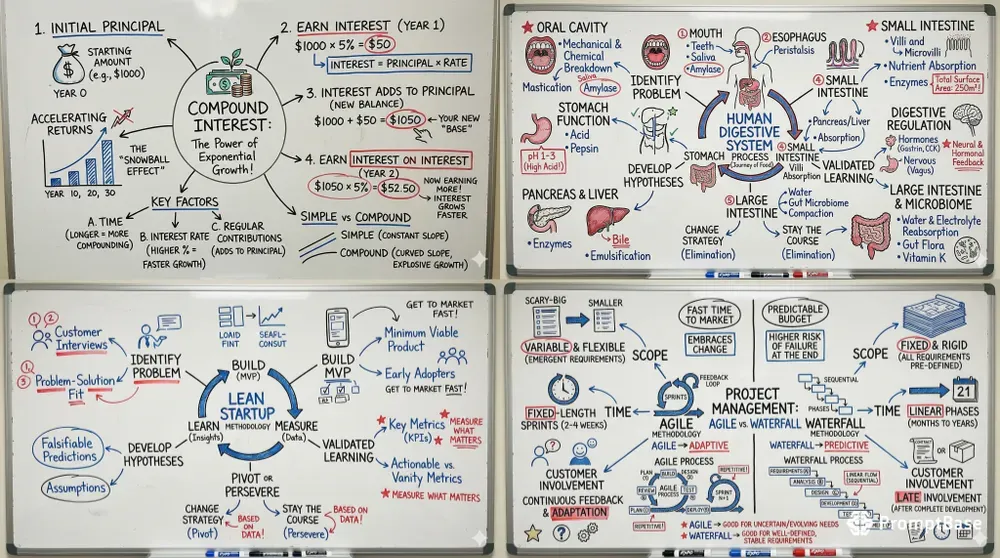 1. INITIAL PRINCIPAL
STARTING
AMOUNT
(e.g., $1000)
$
YEAR 0
ACCELERATING
RETURNS
THE
"SNOWBALL
EFFECT"
YEAR 10, 20, 30
COMPOUND
INTEREST:
The Power of
Exponential
Growth!
2. EARN INTEREST (YEAR 1)
$1000 × 5% = $50
INTEREST = PRINCIPAL × RATE
3. INTEREST ADDS TO PRINCIPAL
(NEW BALANCE)
$1000 + $50 = $1050
YOUR NEW
"BASE"
4. EARN INTEREST ON INTEREST
(YEAR 2)
$1050 × 5% = $52.50
NOW EARNING
MORE!
INTEREST
GROWS
FASTER
KEY FACTORS
A. TIME
(LONGER = MORE
COMPOUNDING)
B. INTEREST RATE
(HIGHER % =
FASTER GROWTH)
C. REGULAR
CONTRIBUTIONS
(ADDS TO PRINCIPAL)
SIMPLE vs COMPOUND
SIMPLE (CONSTANT SLOPE)
COMPOUND (CURVED SLOPE,
EXPLOSIVE GROWTH)
ORAL CAVITY
• Mechanical &
Chemical
Breakdown
Mastication
Saliva
Amylase
STOMACH
FUNCTION
• Acid
• Pepsin
pH 1-3
(High Acid!)
PANCREAS & LIVER
• Enzymes
• Bile
• Emulsification
IDENTIFY
PROBLEM
DEVELOP
HYPOTHESES
1 MOUTH
• Teeth
• Saliva
• Amylase
2 ESOPHAGUS
Peristalsis
HUMAN
DIGESTIVE
SYSTEM
PROCESS
(Journey of Food)
STOMACH
4 SMALL
INTESTINE
• Pancreas/Liver
• Absorption
4 SMALL
INTESTINE
Villi
Absorption
VALIDATED
LEARNING
5 LARGE
INTESTINE
• Water
• Gut Microbiome
• Compaction
CHANGE
STRATEGY
(Elimination)
STAY THE
COURSE
(Elimination)
SMALL INTESTINE
• Villi and
Microvilli
• Nutrient Absorption
• Enzymes
Total Surface
Area: 250m²!
DIGESTIVE
REGULATION
• Hormones
(Gastrin, CCK)
• Nervous
(Vagus)
Neural &
Hormonal
Feedback
LARGE INTESTINE
& MICROBIOME
• Water & Electrolyte
Reabsorption
• Gut Flora
• Vitamin K
1 2
Customer
Interviews
Problem-Solution
Fit
IDENTIFY
PROBLEM
LOAID
FINT
SEAFL-
CONSUT
BUILD
(MVP)
LEAN
STARTUP
METHODOLOGY
LEARN
(Insights)
MEASURE
(Data)
BUILD
MVP
GET TO MARKET
FAST!
Minimum Viable
Product
Early Adopters
GET TO MARKET FAST!
Key Metrics
(KPIs)
MEASURE
WHAT
MATTERS
Actionable vs.
Vanity Metrics
MEASURE WHAT MATTERS
VALIDATED
LEARNING
Falsifiable
Predictions
Assumptions
DEVELOP
HYPOTHESES
PIVOT OR
PERSEVERE
CHANGE
STRATEGY
(Pivot)
BASED
ON
DATA!
STAY THE
COURSE
(Persevere)
BASED ON
DATA!
SCARY-BIG
SMALLER
VARIABLE & FLEXIBLE
(EMERGENT REQUIREMENTS)
SCOPE
FIXED-LENGTH
SPRINTS (2-4 WEEKS)
TIME
CUSTOMER
INVOLVEMENT
CONTINUOUS FEEDBACK
& ADAPTATION
FAST TIME
TO MARKET
EMBRACES
CHANGE
PREDICTABLE
BUDGET
HIGHER RISK
OF FAILURE
AT THE END
FEEDBACK
LOOP
SPRINTS
PROJECT
MANAGEMENT:
AGILE vs. WATERFALL
AGILE
METHODOLOGY
AGILE → ADAPTIVE
WATERFALL
METHODOLOGY
WATERFALL → PREDICTIVE
AGILE PROCESS
PLAN
BUILD
DESIGN
REVIEW
AGILE
PROCESS
TEST
PLAN
DEPLOY
REPETITIVE!
REPETITIVE!
SPRINT
N+1
WATERFALL PROCESS
REQUIREMENTS
ANALYSIS
DESIGN
DEVELOPMENT
LINEAR FLOW
(SEQUENTIAL)
AGILE → GOOD FOR UNCERTAIN/EVOLVING NEEDS
WATERFALL → GOOD FOR WELL-DEFINED,
STABLE REQUIREMENTS
SCOPE
FIXED & RIGID
(ALL REQUIREMENTS
PRE-DEFINED)
SEQUENTIAL
PHASES
TIME
21
LINEAR PHASES
(MONTHS TO YEARS)
OR
CUSTOMER
INVOLVEMENT
LATE INVOLVEMENT
(AFTER COMPLETE DEVELOPMENT)
PromptBase